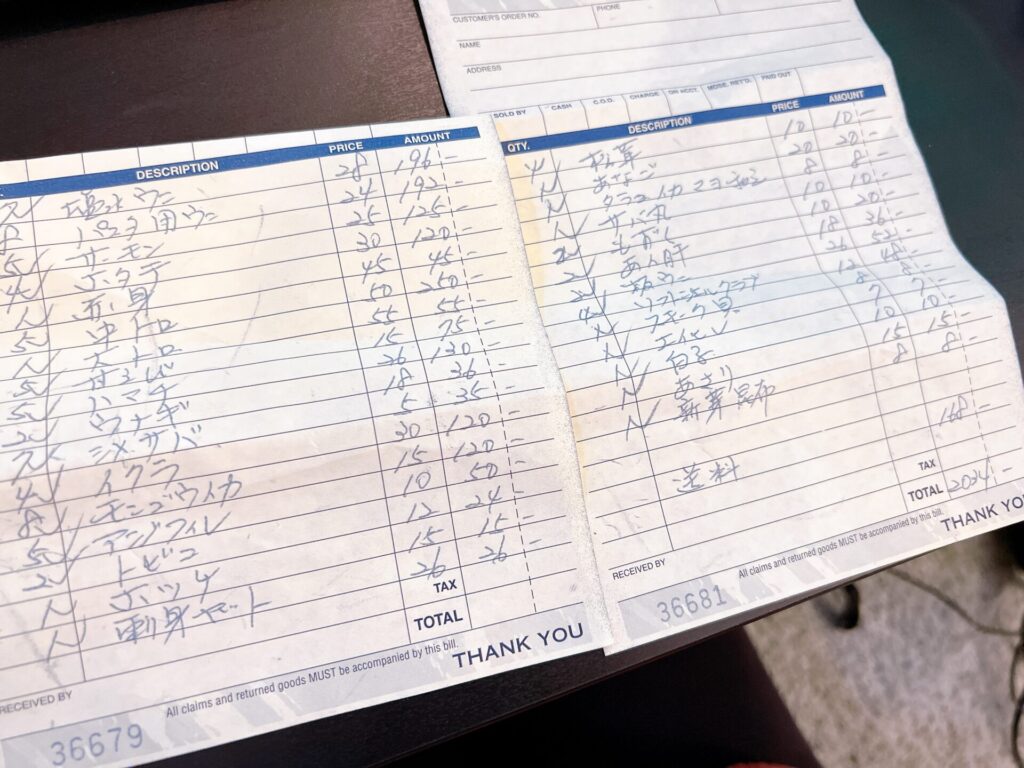 DESCRIPTION PRICE AMOUNT
塩水ウニ 28 196-
用ウニ 24 192-
5 サーモン 25 125-
4 ホタテ 30 120-
1 赤身 45 45-
5 中トロ 50 250-
1 大トロ 55 55-
5 甘エビ 15 75-
5 ハマチ 26 130-
2 ウナギ 18 36-
7 シメサバ 5 35-
4 イクラ 30 120-
8 モンゴウイカ 15 120-
5 アジフィレ 10 50-
2 トビコ 12 24-
1 ホッケ 15 15-
1 刺身セット 26 26-
TAX
TOTAL
RECEIVED BY
All claims and returned goods MUST be accompanied by this bill.
THANK YOU
36679
CUSTOMER'S ORDER NO. PHONE
NAME
ADDRESS
SOLD BY CASH C.O.D. CHARGE ON ACCT. MDSE. RET'D. PAID OUT
QTY. DESCRIPTION PRICE AMOUNT
松茸 10 10-
1 あなご 20 20-
1 8 8-
1 10 10-
2 もずく 10 20-
2 あん肝 18 36-
2 26 52-
4 ソフトシェルクラブ 12 48-
1 8 8-
1 エイヒレ 7 7-
1 白子 10 10-
1 あさり 15 15-
1 昆布 8 8-
送料 168-
TAX
TOTAL 2034-
RECEIVED BY
All claims and returned goods MUST be accompanied by this bill.
THANK YO
36681